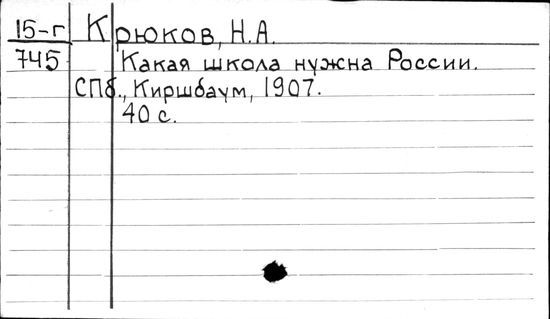 15-г Крюков, Н.А.
745 Какая школа нужна России.
СПб., Киршбаум, 1907.
40 с.